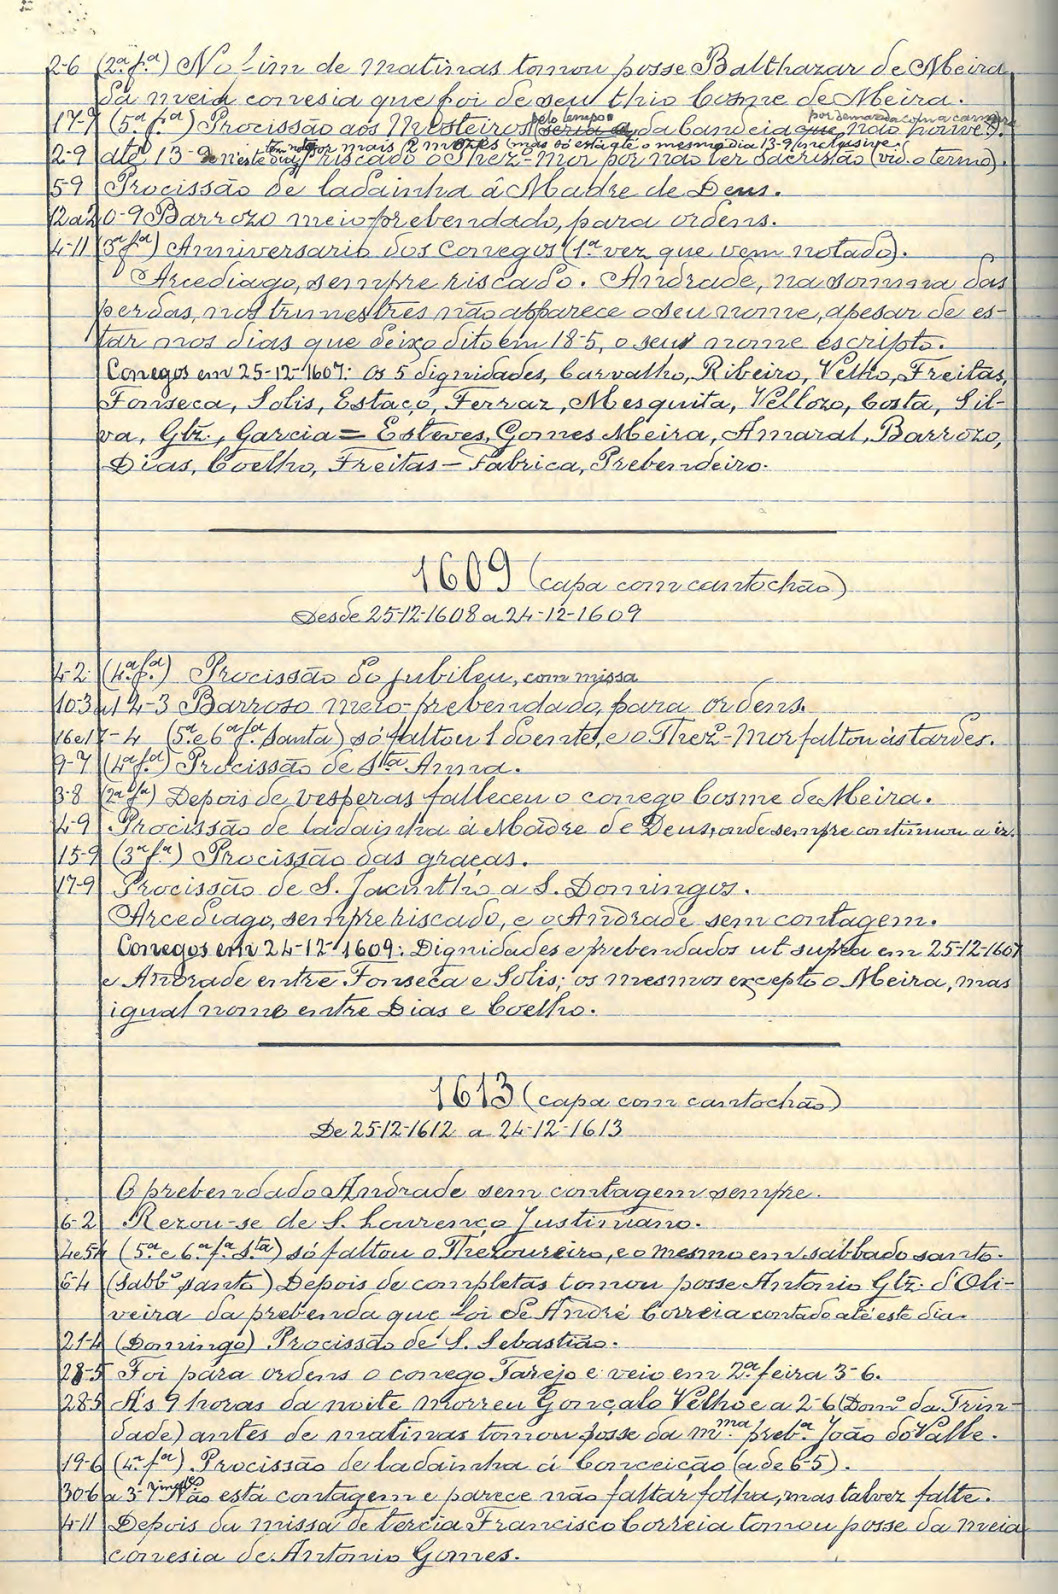 2-6 (2ª fª) No fim de matinas tomou posse Balthazar de Meira
da meia conesia que foi de seu thio Cosme de Meira.
pelo tempo por demanda com a camara
17-7 (5ª fª) Procissão aos Mosteiros da bandeia que não houve).
tem notas por mais 2 mezes (mas só está até o mesmo dia 13-9 inclusive
2-9 até 13-9 riscado o Thez-Mor por não ter sacristão (vid. o termo).
5-9 Procissão de ladainha á Madre de Deus.
12 a 20-9 Barrozo meio-prebendado, para ordens.
4-11 (3ª fª) Anniversario dos Conegos (1ª vez que vem notado).
Arcediago, sempre riscado. Andrade, na somma das
perdas, nos trimestres não apparece o seu nome, apesar de es-
tar nos dias que deixo dito em 18-5, o seu nome escripto.
Conegos em 25-12-1607: Os 5 dignidades, Carvalho, Ribeiro, Velho, Freitas,
Fonseca, Solis, Estaço, Ferraz, Mesquita, Vellozo, Costa, Sil-
va, Glz., Garcia = Esteves, Gomes Meira, Amaral, Barrozo,
Dias, Coelho, Freitas - Fabrica, Prebendeiro.
1609 (capa com cantochão)
Desde 25-12-1608 a 24-12-1609
4-2 (4ª fª) Procissão do jubileu, com missa
10-3 a 14-3 Barroso meio-prebendado, para ordens.
16 e 17-4 (5ª e 6ª fª Santa) só faltou 1 doente, e o Thezº-Mor faltou ás tardes.
9-7 (4ª fª) Procissão de Stª Anna.
3-8 (2ª fª) Depois de vesperas falleceu o conego Cosme de Meira.
4-9 Procissão de ladainha á Madre de Deus, onde sempre continuou a ir.
15-9 (3ª fª) Procissão das graças.
17-9 Procissão de S. Jacintho a S. Domingos.
Arcediago, sempre riscado, e o Andrade sem contagem.
Conegos em 24-12-1609: Dignidades e prebendados ut supra em 25-12-1607
e Andrade entre Fonseca e Solis; os mesmos excepto o Meira, mas
igual nome entre Dias e Coelho.
1613 (capa com cantochão)
De 25-12-1612 a 24-12-1613
O prebendado Andrade sem contagem sempre.
6-2 Rezou-se de S. Lourenço Justiniano.
4 e 5-4 (5ª e 6ª fª Stª) só faltou o Thezoureiro, e o mesmo em sabbado santo.
6-4 (Sabbº santo) Depois de completas tomou posse Antonio Glz. d'Oli-
veira da prebenda que foi de André Correia contado até este dia.
21-4 (Domingo) Procissão de S. Sebastião.
28-5 Foi para ordens o conego Tarejo e veio em 2ª feira 3-6.
28-5 Ás 9 horas da noite morreu Gonçalo Velho e a 2-6 (Domº da Trin-
dade) antes de matinas tomou posse da mmª prebª João do Valle.
19-6 (4ª fª) Procissão de ladainha á Conceição (a de 6-5).
30-6 a 3-7 Não está contagem e parece não faltar folha, mas talvez falte.
4-11 Depois da missa de tercia Francisco Correia tomou posse da meia
conesia de Antonio Gomes.